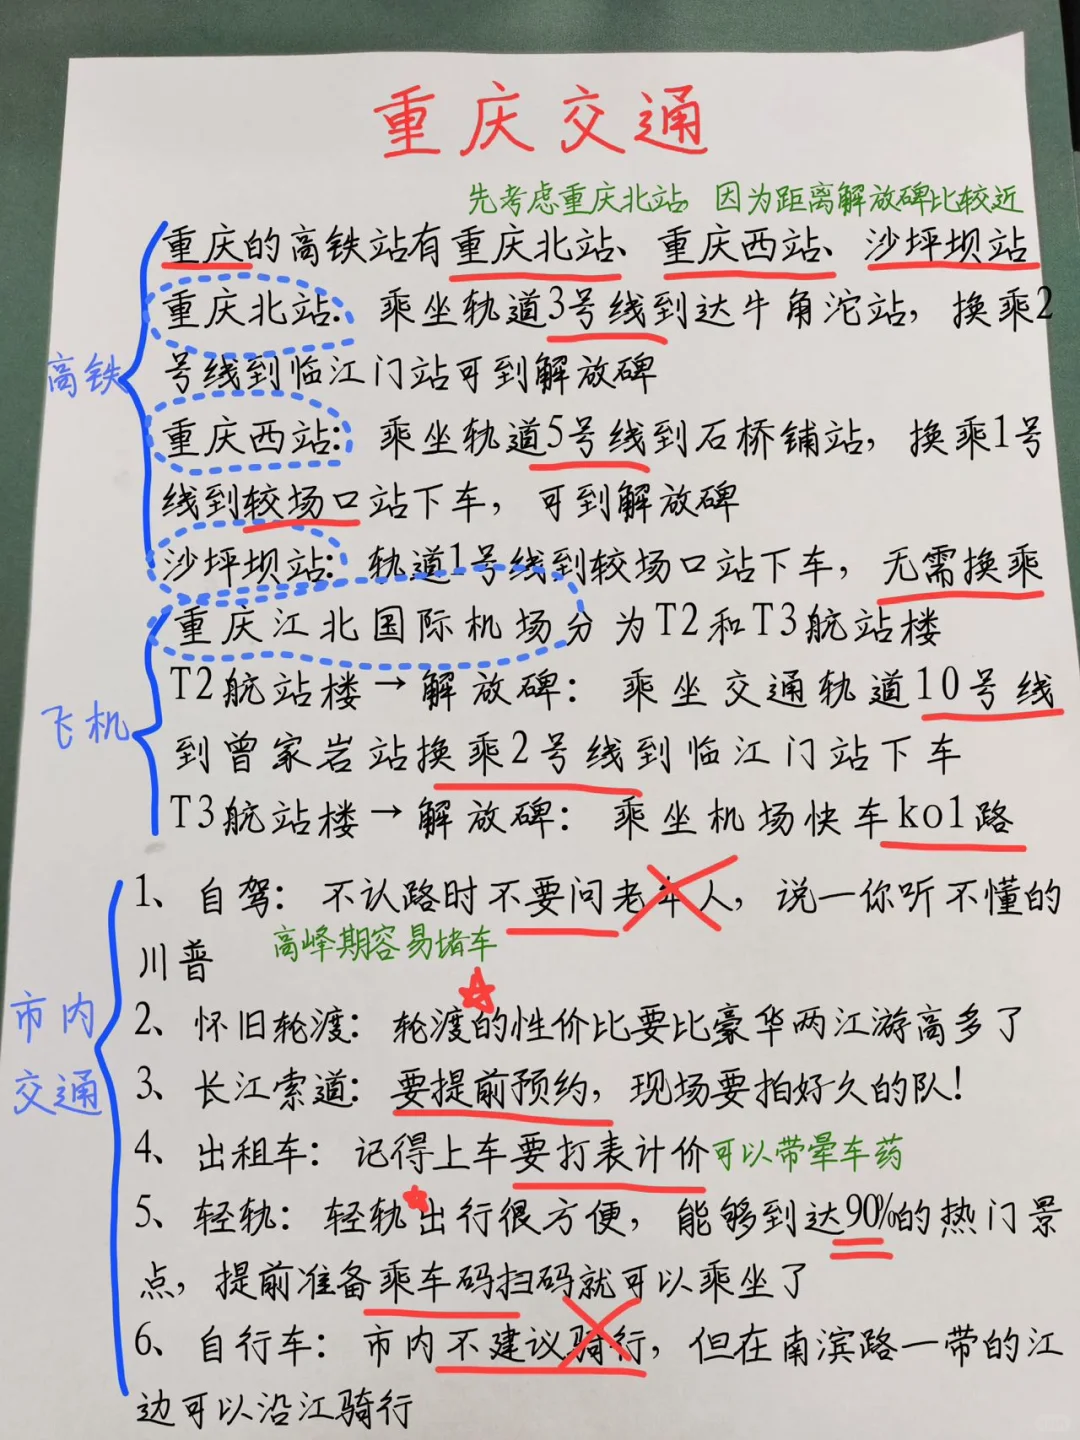 重庆交通
先考虑重庆北站, 因为距离解放碑比较近
重庆的高铁站有重庆北站、重庆西站、沙坪坝站
重庆北站: 乘坐轨道3号线到达牛角沱站，换乘2
高铁
号线到临江门站可到解放碑
重庆西站: 乘坐轨道5号线到石桥铺站，换乘1号
线到较场口站下车，可到解放碑
沙坪坝站: 轨道1号线到较场口站下车，无需换乘
重庆江北国际机场分为T2和T3航站楼
T2航站楼→解放碑：乘坐交通轨道10号线
飞机
到曾家岩站换乘2号线到临江门站下车
T3航站楼→解放碑：乘坐机场快车ko1路
1、自驾：不认路时不要问老年人，说一你听不懂的
川普
高峰期容易堵车
市内
交通
2、怀旧轮渡：轮渡的性价比要比豪华两江游高多了
3、长江索道：要提前预约，现场要拍好久的队！
4、出租车：记得上车要打表计价
可以带晕车药
5、轻轨：轻轨出行很方便，能够到达90%的热门景
点，提前准备乘车码扫码就可以乘坐了
6、自行车：市内不建议骑行，但在南滨路一带的江
边可以沿江骑行